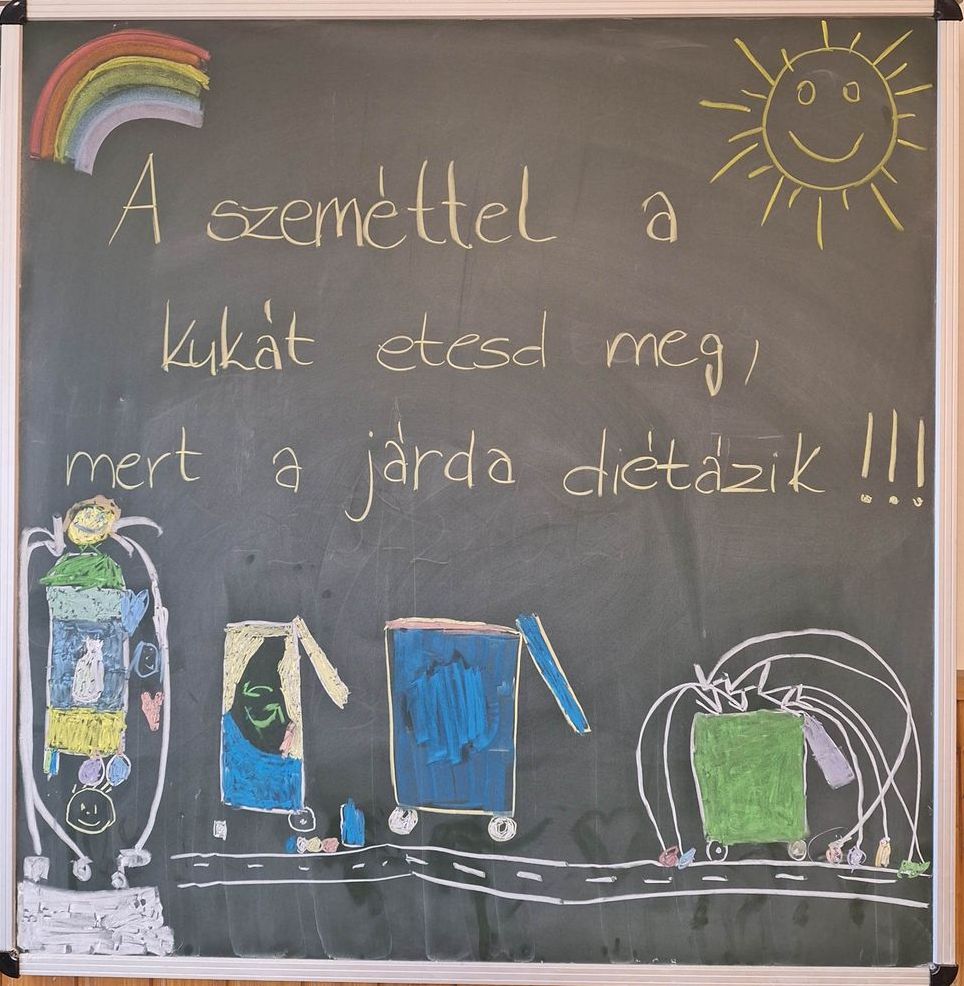 A szeméttel a
kukát etesd meg,
mert a járda diétázik!!!